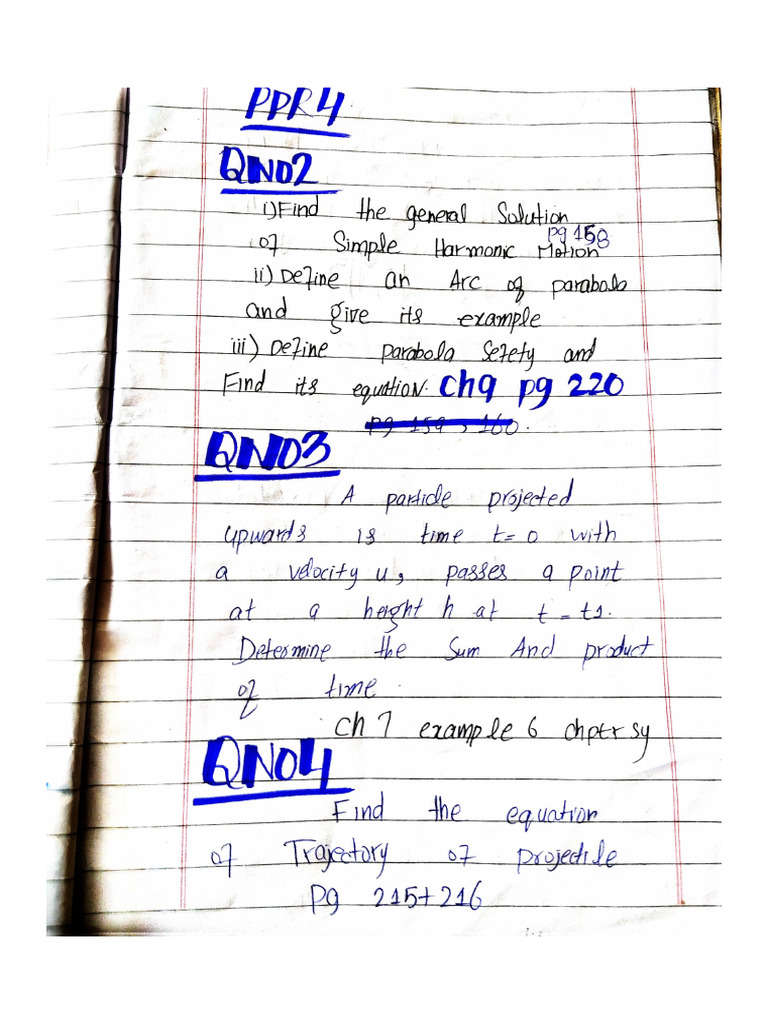 PPR4
QNO2
i)Find the general Solution
of Simple Harmonic Motion pg 158
ii) Define an Arc of parabola
and give its example
iii) Define parabola Sefety and
Find its equation. Ch9 pg 220
pg 159, 160.
QNO3
A particle projected
upwards is time t=0 with
a velocity u, passes a point
at a height h at t=t1.
Determine the Sum And product
of time.
Ch 7 example 6 chptr sy
QNO4
Find the equation
of Trajectory of projectile
Pg 215+216